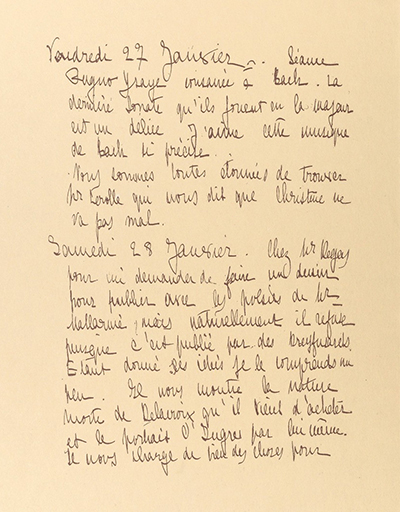 Vendredi 27 Janvier. Séance
Pugno Ysaye consacrée à Bach. La
dernière sonate qu'ils jouent en la majeur
est un délice. J'aime cette musique
de Bach si précise.
Nous sommes toutes étonnées de trouver
Mr Lerolle qui nous dit que Christine ne
va pas mal.
Samedi 28 Janvier. Chez Mr Degas
pour lui demander de faire un dessin
pour publier avec les poésies de Mr
Mallarmé, mais naturellement il refuse
puisque c'est publié par des Dreyfusards.
Etant donné ses idées je le comprends un
peu. Il nous montre la nature
morte de Delacroix qu'il vient d'acheter
et le portrait d'Ingres par lui même.
Il nous charge de bien des choses pour